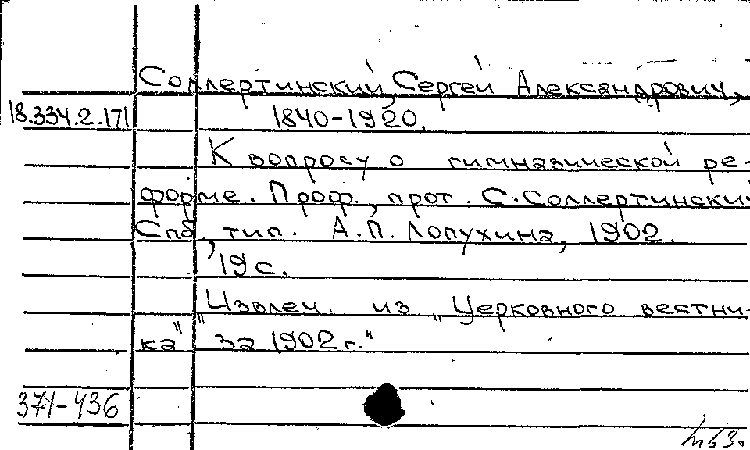 Соллертинский, Сергей Александрович,
18.334.2.171 1840-1920.
К вопросу о гимназической ре-
форме. Проф., прот. С. Соллертинский
Спб, тип. А.П. Лопухина, 1902.
19 с.
"Извлеч. из "Церковного вестни-
ка" за 1902 г."
371-436